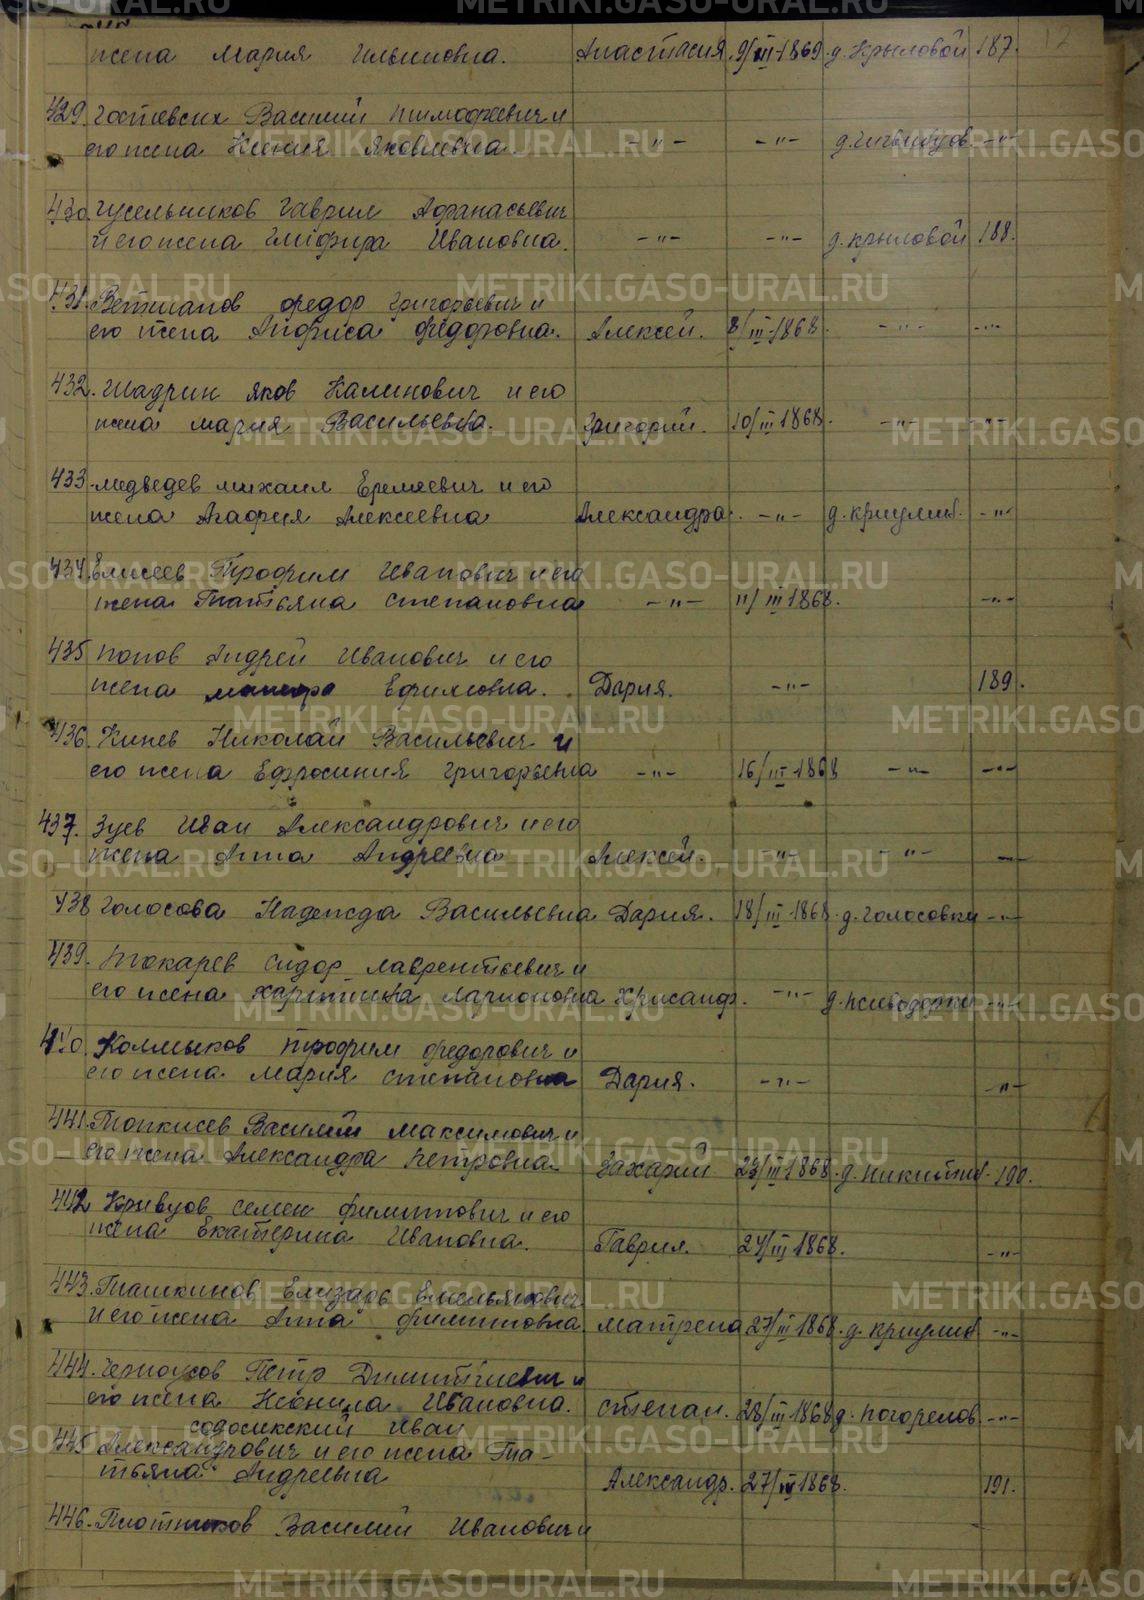 жена Мария Ильиновна. Анастасия. 9/III-1869 д. Крыловой 187. 12
429. Гостевских Василий Тимофеевич и
его жена Ксения Яковлевна. -"- -"- -"-
430. Гусельников Гаврил Афанасьевич
и его жена Глафира Ивановна. -"- -"- д. Крыловой 188.
431. Ветшанов Федор Григорьевич и
его жена Анфиса Федоровна. Алексей. 8/III-1868. -"- -"-
432. Шадрин Яков Калинович и его
жена Мария Васильевна. Григорий. 10/III 1868. -"- -"-
433. Медведев Михаил Еремеевич и его
жена Агафия Алексеевна Александра. -"- д. Криулин. -"-
434. Елисеев Трофим Иванович и его
жена Татьяна Степановна -"- 11/III 1868. -"-
435 Попов Андрей Иванович и его
жена Ефимовна. Дария. -"- 189.
436. Кинев Николай Васильевич и
его жена Ефросиния Григорьевна -"- 16/III-1868 -"- -"-
437. Зуев Иван Александрович и его
жена Анна Андреевна Алексей. -"- -"- -"-
438 Голосова Надежда Васильевна Дария. 18/III-1868. д. Голосовки -"-
439. Токарев Сидор Лаврентьевич и
его жена Харитина Ларионовна Хрисанф. -"- -"-
440. Колмыков Трофим Федорович и
его жена Мария Степановна Дария. -"- -"-
441. Топкисев Василий Максимович и
его жена Александра Петровна. Захарий 23/III 1868. д. Никитин. 190.
442 Кривцов Семен Филиппович и его
жена Екатерина Ивановна. Гаврил. 24/III 1868. -"-
443. Ташкинов Елизарь Емельянович
и его жена Анна Филипповна Матрена 27/III 1868. д. Криулин -"-
444. Черноусов Петр Димитриевич и
его жена Неонила Ивановна. Степан. 28/III 1868 д. Погорелов -"-
Иван
445 Александрович и его жена Та-
тьяна Андреевна Александр. 27/III 1868. 191.
446. Плотников Василий Иванович и
METRIKI.GASO-URAL.RU